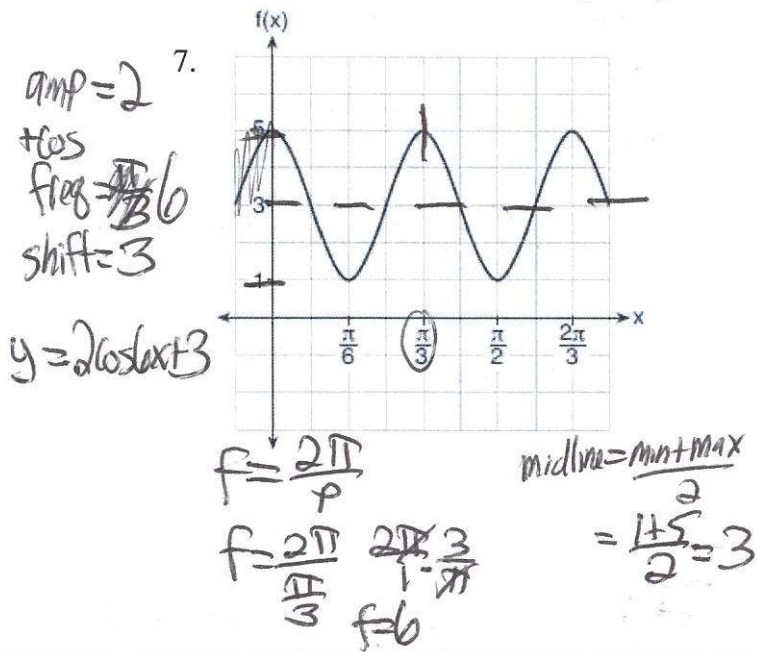 f(x)
7.
amp=2
+cos
freq= 6
shift=3
y=2cos6x+3
5
3
1
x
π/6 π/3 π/2 2π/3
f=2π/p
f=2π/(π/3) 2π/1·3/π
f=6
midline=min+max/2
=1+5/2=3